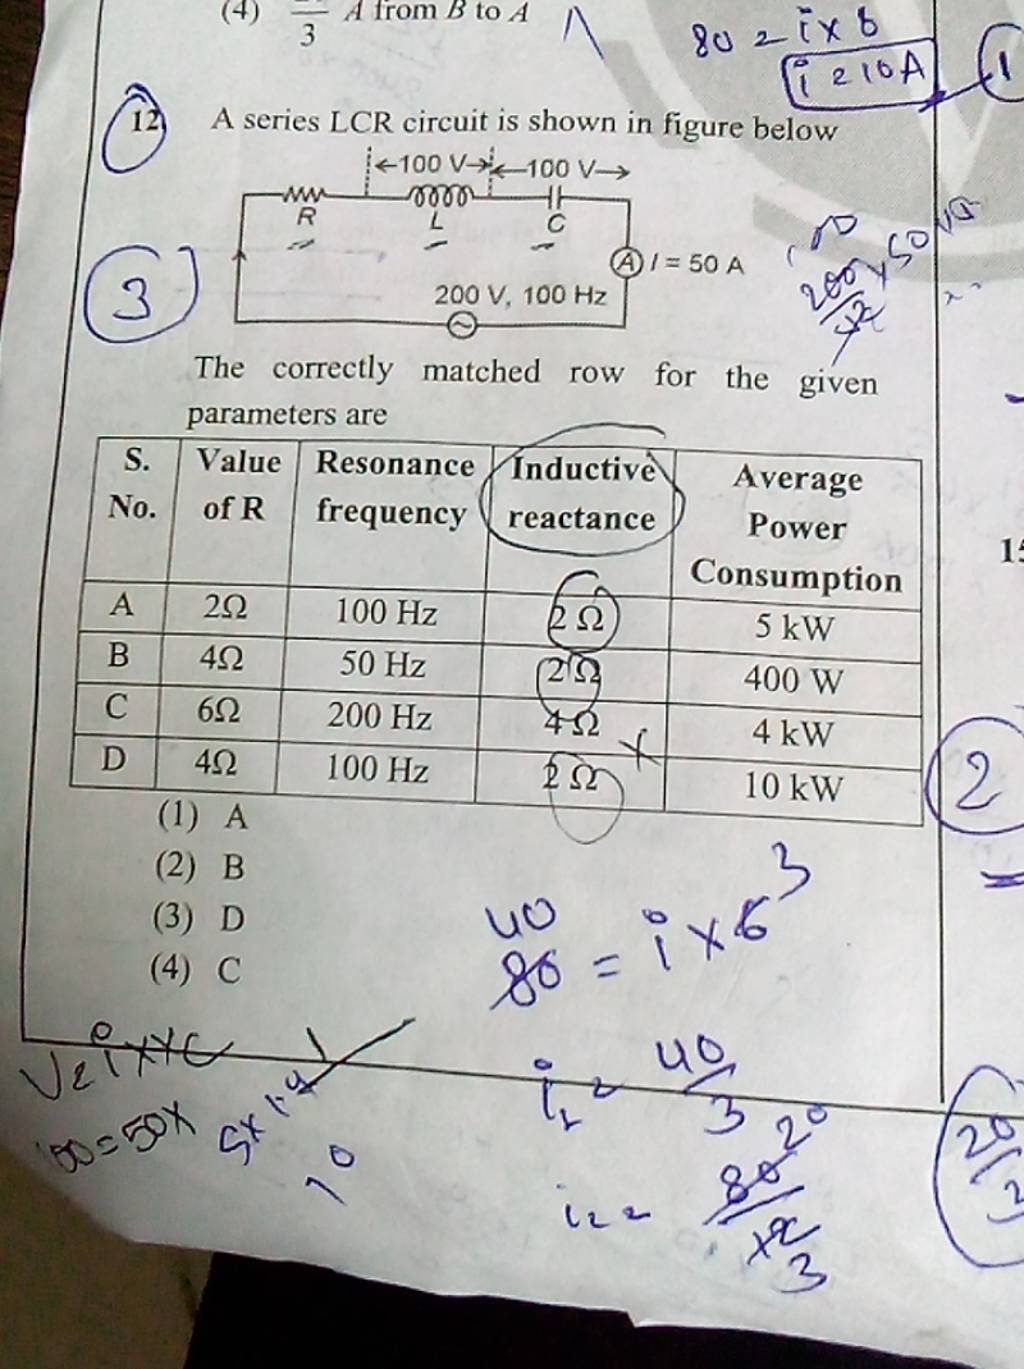 (4) 3 A from B to A
80 = i x 6
i = 10A
1
12. A series LCR circuit is shown in figure below
←100 V→ ←100 V→
R L C
A I = 50 A
200 V, 100 Hz
3
200 x 50
The correctly matched row for the given
parameters are
S. No. Value of R Resonance frequency Inductive reactance Average Power Consumption
A 2Ω 100 Hz 2 Ω 5 kW
B 4Ω 50 Hz 2Ω 400 W
C 6Ω 200 Hz 4 Ω 4 kW
D 4Ω 100 Hz 2 Ω 10 kW
2
(1) A
(2) B
(3) D
(4) C
40 3
80 = i x 6
V = i x
100 = 50x
10
i₁ = 40/3
20
i₂ = 80
3
20